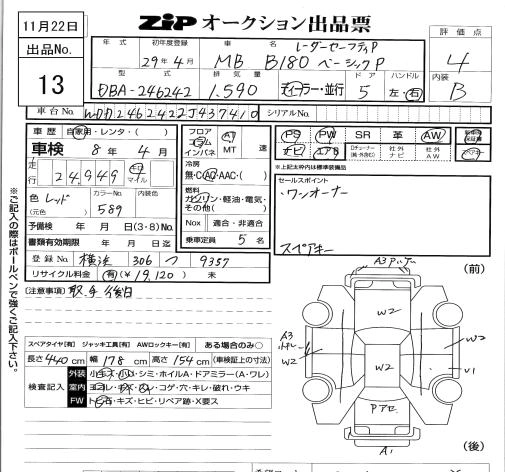 11月22日
出品No.
13
ZIP オークション出品票
年式 初年度登録 車名 評価点
29年4月 MB B180 レーダーセーフティP ベーシックP 4
型式 排気量 ドア ハンドル 内装
DBA-246242 1.590 ディーラー・並行 5 左・右 B
車台No. WDD2462422J437410 シリアルNo.
車歴 自家用・レンタ・( )
フロア コラム インパネ AT MT 速
PS PW SR 革 AW
ナビ エアB Dチューナー(純・外含む) 社外ナビ 社外AW
※上記太枠内は標準装備品
車検 8年4月
走行 24,949 キロ マイル
冷房 無・C・AC・AAC・( )
セールスポイント
・ワンオーナー
色 レッド カラーNo. 589 内装色
(元色)
燃料 ガソリン・軽油・電気・その他( )
予備検 年 月 日(3・8)No.
Nox 適合・非適合
書類有効期限 年 月 日迄
乗車定員 5名
スペアキー
登録No. 横浜 306 つ 9357
リサイクル料金 有(¥19,120) 未
(注意事項) 取手後日
※ご記入の際はボールペンで強くご記入下さい。
(前)
A3
W2
A3
W2
W2
W2
U1
Pアセ
A1
(後)
スペアタイヤ[有] ジャッキ工具[有] AWロックキー[有] ある場合のみ○
長さ440cm 幅178cm 高さ154cm (車検証上の寸法)
検査記入 外装 小キズ・小凹・シミ・ホイルA・ドアミラー(A・ワレ)
室内 ヨゴレ・キズ・スレ・コゲ・穴・キレ・破れ・ウキ
FW トビ石・キズ・ヒビ・リペア跡・X要ス